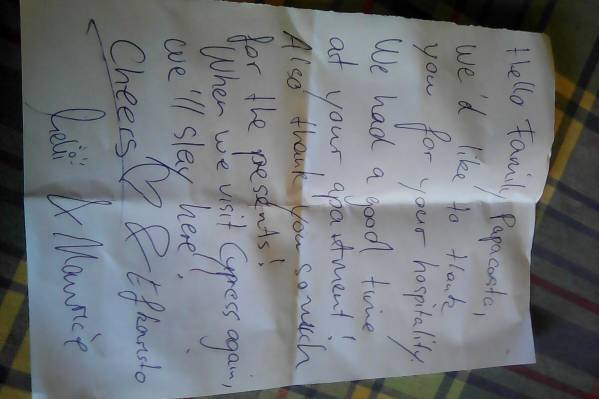 Hello Family Papacosta,
we'd like to thank
you for your hospitality.
We had a good time
at your apartment!
Also thank you so much
for the presents!
When we visit Cypress again,
we'll stay here!
Cheers & Efkaristo
& Maurice